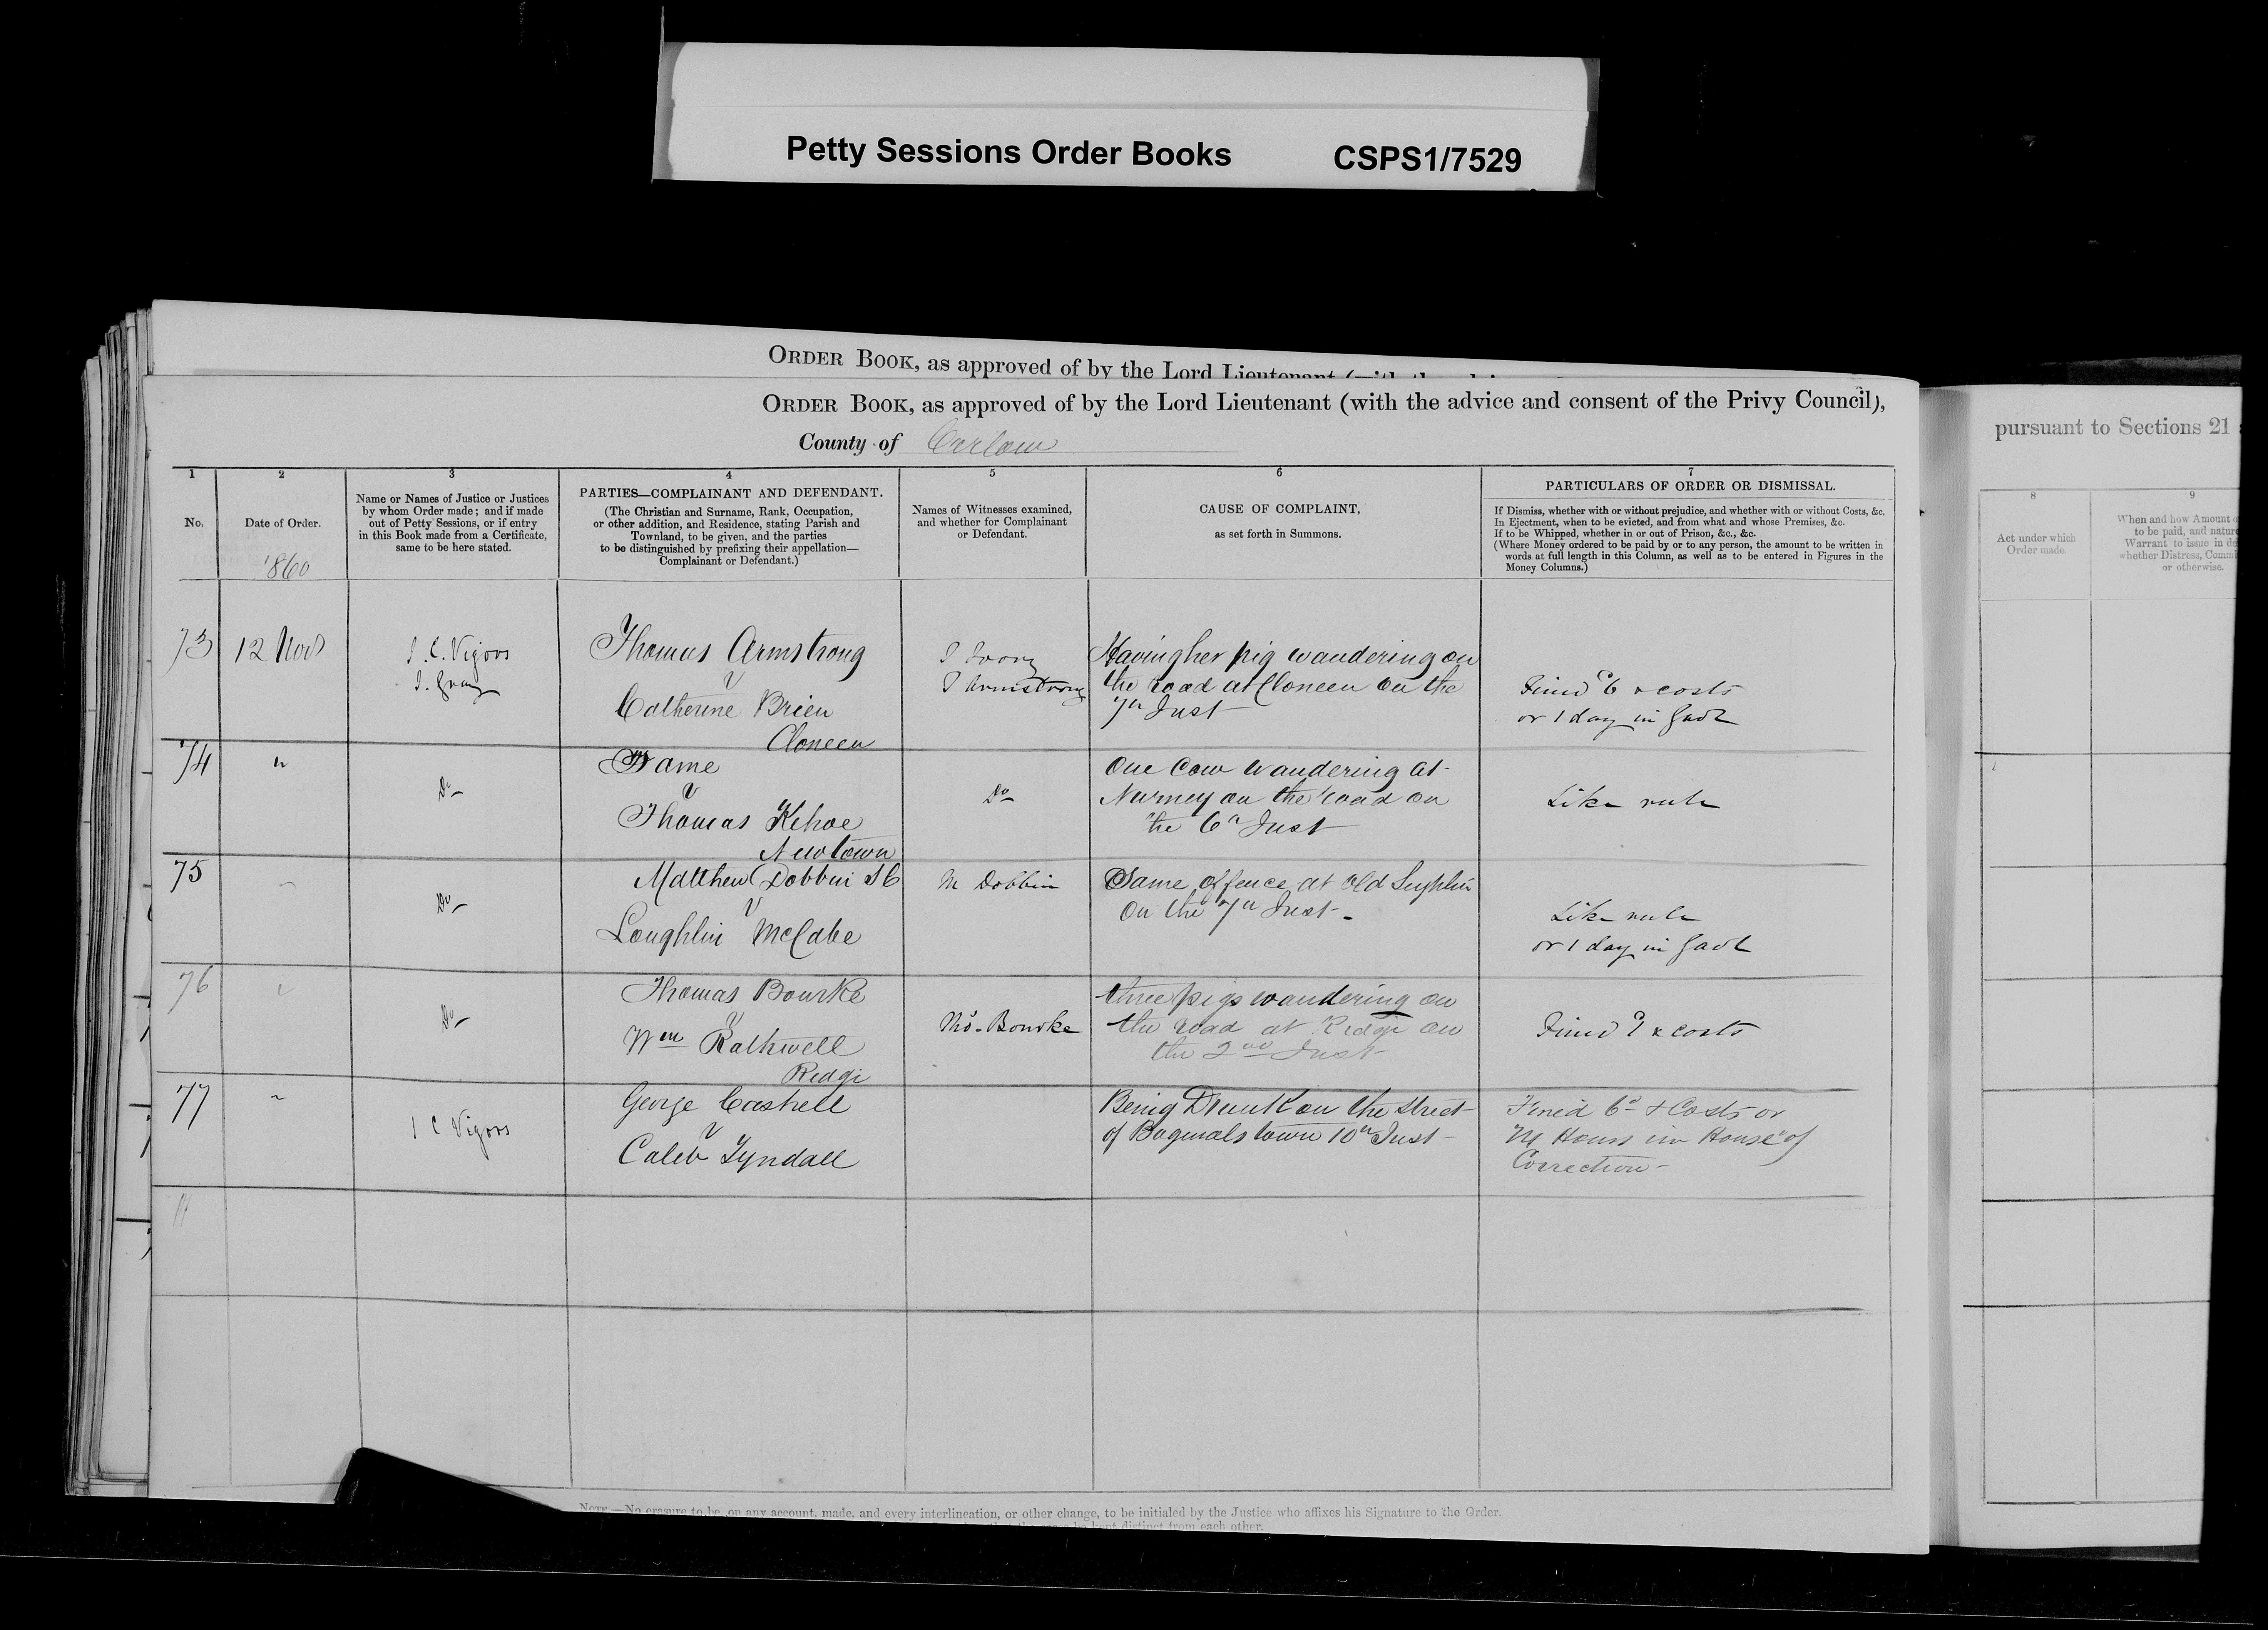 Petty Sessions Order Books CSPS1/7529
ORDER BOOK, as approved of by the Lord Lieutenant
ORDER BOOK, as approved of by the Lord Lieutenant (with the advice and consent of the Privy Council),
pursuant to Sections 21
County of Carlow
1 2 3 4 5 6 7 8 9
No.
Date of Order.
1860
Name or Names of Justice or Justices
by whom Order made; and if made
out of Petty Sessions, or if entry
in this Book made from a Certificate,
same to be here stated.
PARTIES—COMPLAINANT AND DEFENDANT.
(The Christian and Surname, Rank, Occupation,
or other addition, and Residence, stating Parish and
Townland, to be given, and the parties
to be distinguished by prefixing their appellation—
Complainant or Defendant.)
Names of Witnesses examined,
and whether for Complainant
or Defendant.
CAUSE OF COMPLAINT,
as set forth in Summons.
PARTICULARS OF ORDER OR DISMISSAL.
If Dismiss, whether with or without prejudice, and whether with or without Costs, &c.
In Ejectment, when to be evicted, and from what and whose Premises, &c.
If to be Whipped, whether in or out of Prison, &c., &c.
(Where Money ordered to be paid by or to any person, the amount to be written in
words at full length in this Column, as well as to be entered in Figures in the
Money Columns.)
Act under which
Order made.
When and how Amount
to be paid, and natur
Warrant to issue in de
whether Distress, Commi
or otherwise.
73
12 Novr
J. C. Vigors
J. Gray
Thomas Armstrong
v
Catherine Brien
Cloneen
T Armstrong
Having her pig wandering on
the road at Cloneen on the
7th Inst
Fined 6d & costs
or 1 day in Gaol
74
"
Do
Same
v
Thomas Kehoe
Newtown
Do
One Cow wandering at
Nurney on the road on
the 6th Inst
Like rule
75
"
Do
Matthew Dobbin SC
v
Loughlin McCabe
M Dobbin
Same offence at Old Leighlin
on the 7th Inst
Like rule
or 1 day in Gaol
76
"
Do
Thomas Bourke
v
Wm Rathwell
Ridge
Thos. Bourke
three pigs wandering on
the road at Ridge on
the 2nd Inst
Fined & costs
77
"
J C Vigors
George Cashell
v
Caleb Tyndall
Being Drunk on the street
of Bagnalstown 10th Inst
Fined 6d & Costs or
Hours in House of
Correction
NOTE.—No erasure to be, on any account, made, and every interlineation, or other change, to be initialed by the Justice who affixes his Signature to the Order.
be kept distinct from each other.